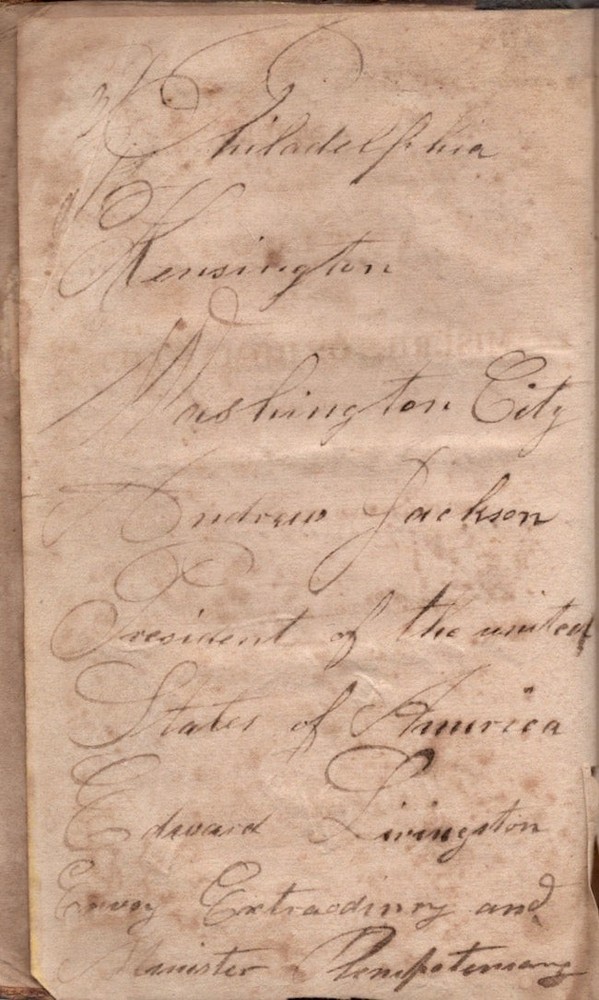 Philadelphia
Kensington
Washington City
Andrew Jackson
President of the united
States of America
Edward Livingston
Envoy Extraodinry and
Minister